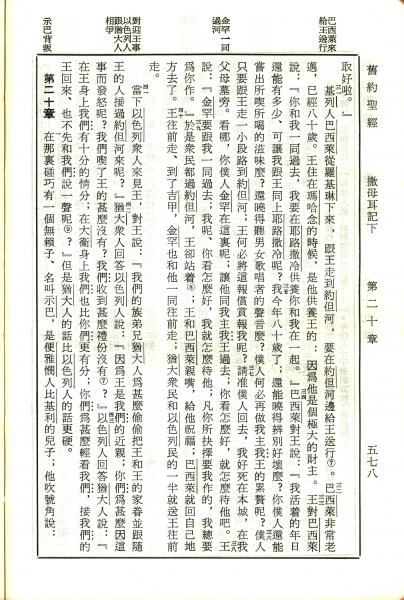 舊約聖經 撒母耳記下 第二十章 五七八
巴西萊來
給王送行
取好啦。』
基列人巴西萊從羅基琳下來，跟王走到約但河，要在約但河邊給王送行⑦。巴西萊非常老
邁，已經八十歲。王住在瑪哈念的時候，是他供養王的：因爲他是個極大的財主。王對巴西萊
說：『你和我一同過去，我要在耶路撒冷供養你和我在一起。』巴西萊對王說：『我活着的年日
還能有多少，可讓我跟王同上耶路撒冷呢？我今年八十歲了；還能曉得辨別好壞麼？你僕人還能
嘗出所喫所喝的滋味麼？還曉得聽男女歌唱者的聲音麼？僕人何必再做我主我王的累贅呢？僕人
只要跟王走一小段路到約但河；王何必將這報償賞報我呢？請准僕人回去，我好死在本城，在我
金罕一同
過河
父母墓旁。看哪，你僕人金罕在這裏呢；讓他同我主我王過去；你看怎麼好，就怎麼待他吧。王
說：『金罕要跟我一同過去；我呢、你看怎麼好，我就怎麼待他；凡你所抉擇要我作的，我總要
爲你作。』於是衆民都過約但河，王卻站着⑧；王和巴西萊親嘴，給他祝福；巴西萊就回自己地
方去了。王往前走、到了吉甲，金罕也和他一同往前走；猶大衆民和以色列民的一半就送王往前
走。
對迎王事
以色列人
跟猶大人
相爭
當下以色列衆人來見王，對王說：『我們的族弟兄猶大人爲甚麼偷偷把王和王的家眷並跟隨
王的人接過約但河來呢？』猶大衆人回答以色列人說：『因爲王是我們的近親；你們爲甚麼因這
事而發怒呢？我們喫了王的甚麼沒有？我們收到甚麼禮份沒有⑦？』以色列人回答猶大人說：『
在王身上我們有十分的情分；在大衛身上我們也比你們更有分；你們爲甚麼輕看我們，接我們的
王回來、也不先和我們說一聲呢⑨？』但是猶大人的話比以色列人的話更硬。
示巴背叛
第二十章 在那裏碰巧有一個無賴子、名叫示巴，是便雅憫人比基利的兒子；他吹號角說：